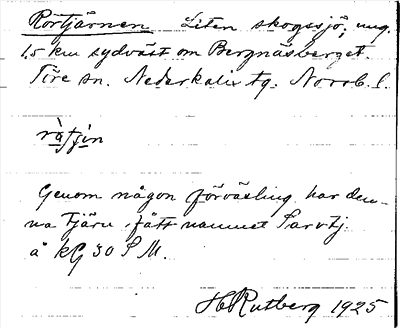 Rörtjärnen Liten skogssjö, ung.
1,5 km sydväst om Bergnäsberget.
Töre sn. Nederkalix tg. Norrb. l.
Genom någon förväxling har den-
na tjärn fått namnet Sarvtj.
å KG 30 S M.
H Rutberg 1925